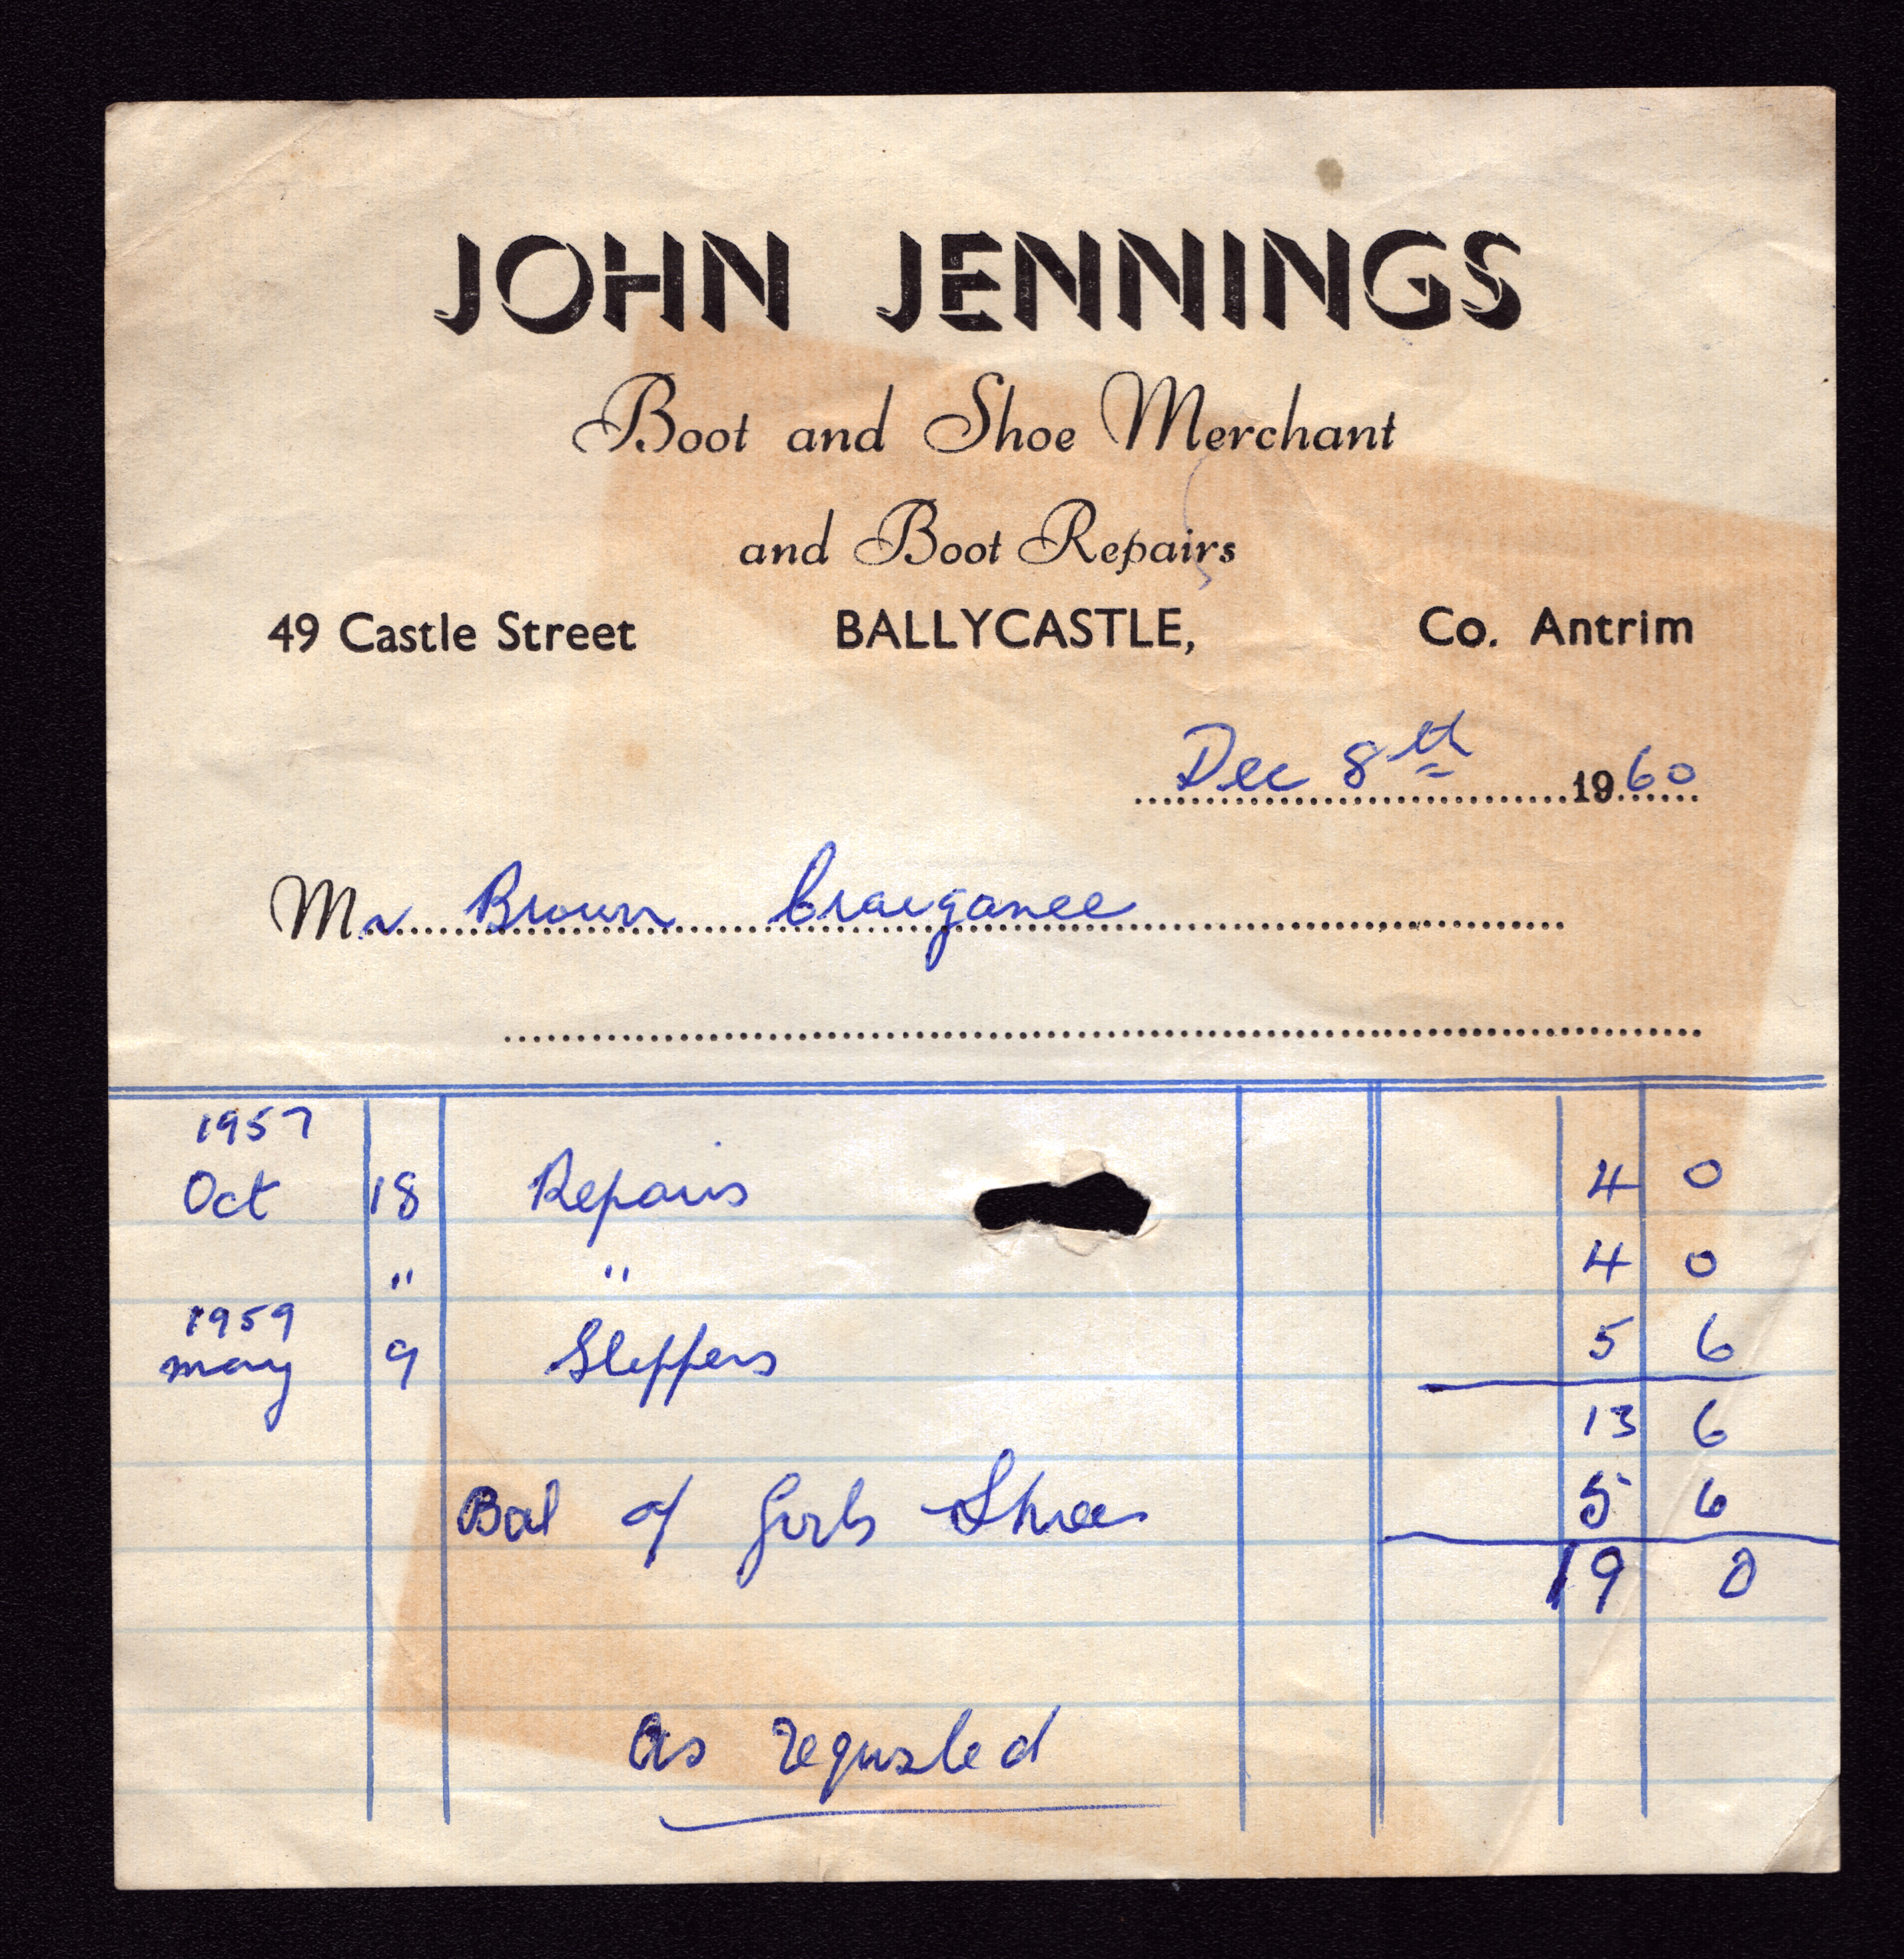 JOHN JENNINGS
Boot and Shoe Merchant
and Boot Repairs
49 Castle Street BALLYCASTLE, Co. Antrim
Dec 8th 1960
Mr Brown Craiganee
1957
Oct 18 Repairs 4 0
" " 4 0
1959
may 9 Slippers 5 6
13 6
Bal of Girls Shoes 5 6
19 0
As requsted